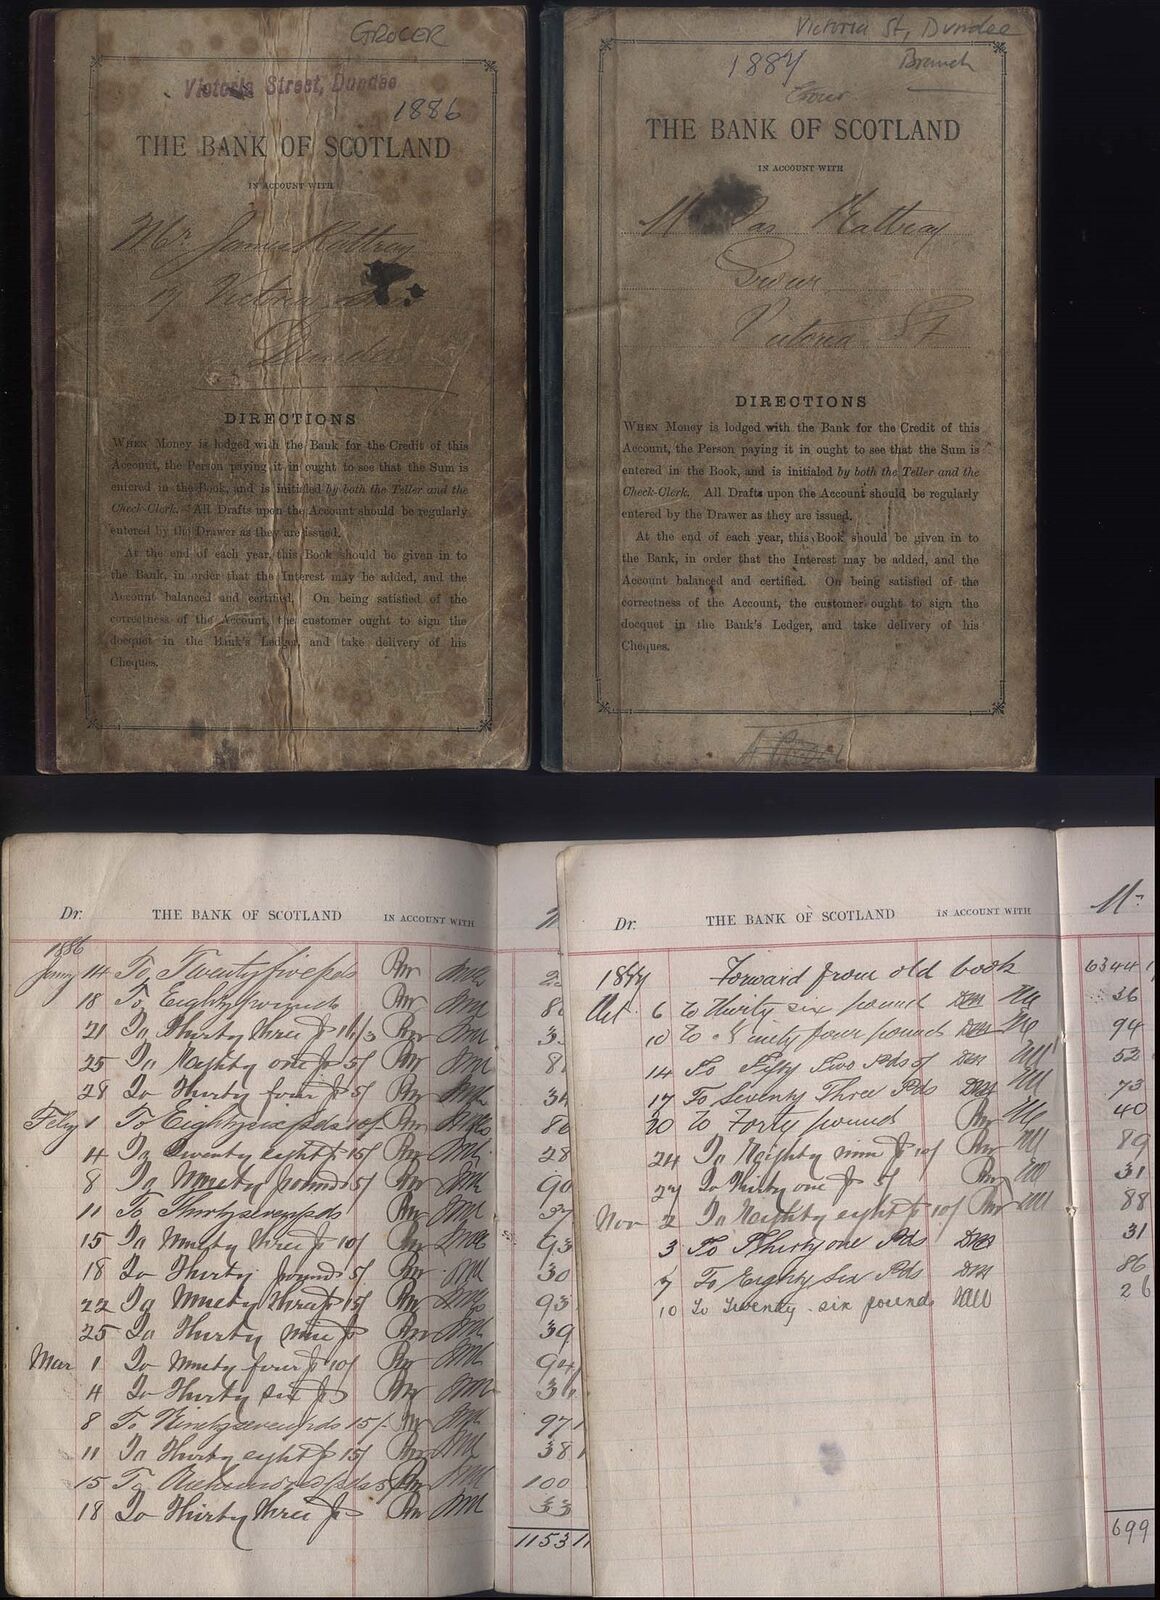 GROCER
Victoria Street, Dundee
1886
THE BANK OF SCOTLAND
IN ACCOUNT WITH
Mr. James Rattray
17 Victoria
Dundee
DIRECTIONS
WHEN Money is lodged with the Bank for the Credit of this
Account, the Person paying it in ought to see that the Sum is
entered in the Book, and is initialed by both the Teller and the
Check-Clerk. All Drafts upon the Account should be regularly
entered by the Drawer as they are issued.
At the end of each year, this Book should be given in to
the Bank, in order that the Interest may be added, and the
Account balanced and certified. On being satisfied of the
correctness of the Account, the customer ought to sign the
docquet in the Bank's Ledger, and take delivery of his
Cheques.
Victoria St, Dundee
1887 Branch
THE BANK OF SCOTLAND
IN ACCOUNT WITH
Jas Rattray
Grocer
Victoria St
DIRECTIONS
WHEN Money is lodged with the Bank for the Credit of this
Account, the Person paying it in ought to see that the Sum is
entered in the Book, and is initialed by both the Teller and the
Check-Clerk. All Drafts upon the Account should be regularly
entered by the Drawer as they are issued.
At the end of each year, this Book should be given in to
the Bank, in order that the Interest may be added, and the
Account balanced and certified. On being satisfied of the
correctness of the Account, the customer ought to sign the
docquet in the Bank's Ledger, and take delivery of his
Cheques.
Dr. THE BANK OF SCOTLAND IN ACCOUNT WITH
1886
14 To Twentyfive pds
18 To Eighty pounds 80
21 To Thirty three 16/3
25 To Neighty one 5/
28 To Thirty four 5/ 34
Feby 1 To Eightysix pds 10/ 86
4 To Twenty eight 15/ 28
8 To Ninety pounds 5/ 90
11 To Thirtyseven pds 37
15 To Ninety three 10/ 93
18 To Thirty pounds 5/ 30
22 To Ninety three 15/ 93
25 To Thirty nine 39
Mar 1 To Ninety four 10/ 94
4 To Thirty six 36
8 To Ninetyseven pds 15/- 97
11 To Thirty eight 15/ 38
15 To Onehundred pds 5/ 100
18 To Thirty three 33
1153 11
Dr. THE BANK OF SCOTLAND IN ACCOUNT WITH
1887 Forward from old book 6344
Oct 6 to thirty six pound 36
10 To Ninety four pound 94
14 To Fifty Two Pds 5/ 52
17 To Seventy Three Pds 73
20 To Forty pound 40
24 To Neighty nine 10/ 89
27 To Thirty one 5/ 31
Nov 2 To Neighty eight 10/ 88
3 To Thirty one Pds 31
7 To Eighty Six Pds 86
10 To Twenty six pounds 26
699